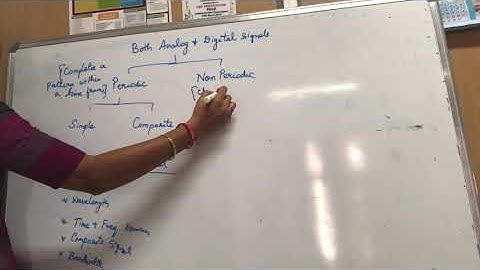 Both Analog & Digital Signals
{Complete a
pattern within
a time frame}
Periodic
Non Periodic
Simple
Composite
* Wavelength
* Time & Freq.
* Composite Signal
* Bandwidth